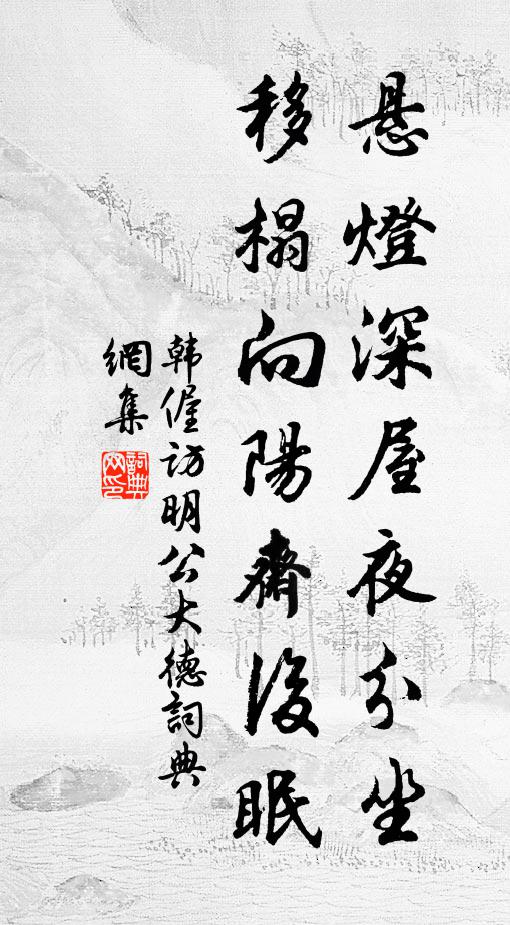 悬燈深屋夜分坐
移榻向陽齋後眠
韩偓访明公大德詞典
網集
詞典
网印